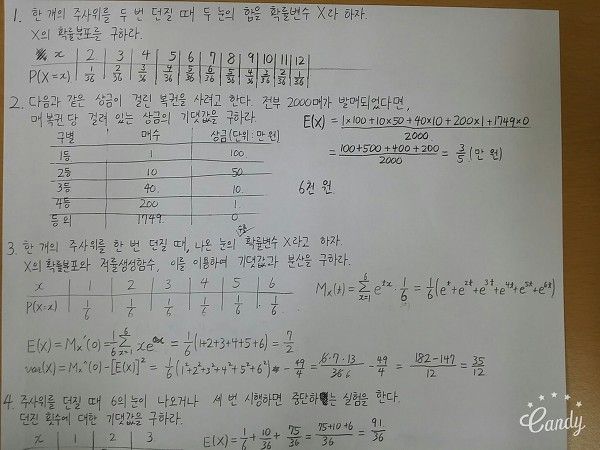 1. 한 개의 주사위를 두 번 던질 때 두 눈의 합을 확률변수 X라 하자.
X의 확률분포를 구하라.
x 2 3 4 5 6 7 8 9 10 11 12
P(X=x) 1/36 2/36 3/36 4/36 5/36 6/36 5/36 4/36 3/36 2/36 1/36
2. 다음과 같은 상금이 걸린 복권을 사려고 한다. 전부 2000매가 발매되었다면,
매 복권 당 걸려 있는 상금의 기댓값을 구하라.
E(X) = (1×100+10×50+40×10+200×1+1749×0)/2000
= (100+500+400+200)/2000 = 3/5 (만 원)
6천 원.
구별 매수 상금(단위: 만 원)
1등 1 100
2등 10 50
3등 40 10
4등 200 1
등외 1749 0
3. 한 개의 주사위를 한 번 던질 때, 나온 눈의 확률변수 X라고 하자.
X의 확률분포와 적률생성함수, 이를 이용하여 기댓값과 분산을 구하라.
x 1 2 3 4 5 6
P(X=x) 1/6 1/6 1/6 1/6 1/6 1/6
Mx(t) = Σ_{x=1}^{6} e^{tx} · 1/6 = 1/6(e^t+e^{2t}+e^{3t}+e^{4t}+e^{5t}+e^{6t})
E(X) = Mx'(0) = 1/6 Σ_{x=1}^{6} xe^{0x} = 1/6(1+2+3+4+5+6) = 7/2
var(X) = Mx''(0) - [E(X)]² = 1/6(1²+2²+3²+4²+5²+6²) - 49/4 = 6·7·13/36 - 49/4 = (182-147)/12 = 35/12
4. 주사위를 던질 때 6의 눈이 나오거나 세 번 시행하면 중단하는 실험을 한다.
던진 횟수에 대한 기댓값을 구하라.
x 1 2 3
E(X) = 1/6 + 10/36 + 75/36 = (75+10+6)/36 = 91/36
Candy